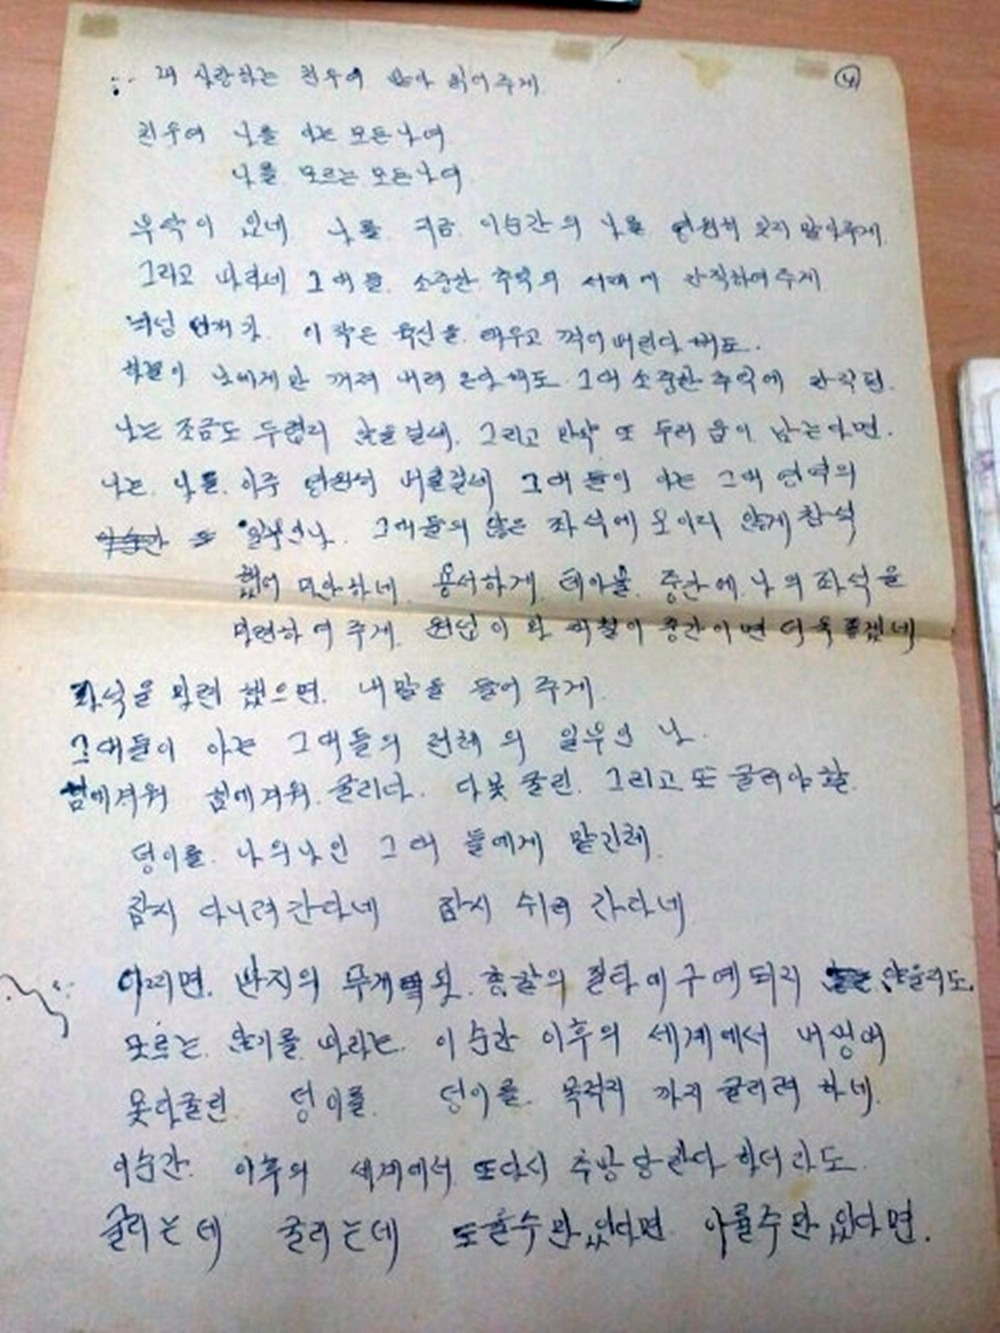 내 사랑하는 친우여 받아 읽어주게. ④
친우여 나를 아는 모든 나여
나를 모르는 모든 나여
부탁이 있네. 나를 지금 이 순간의 나를 영원히 잊지 말아주게.
그리고 바라네 그대들 소중한 추억의 서재에 간직하여주게
뇌성 번개가 이 작은 육신을 태우고 꺾어 버린다 해도.
하늘이 나에게만 꺼져 내려 온다 해도 그대 소중한 추억에 간직된
나는 조금도 두렵지 않을걸세. 그리고 만약 또 두려움이 남는다면.
나는 나를 아주 영원히 버릴걸세 그대들이 아는 그대 영역의
일부인 나. 그대들의 앉은 좌석에 보이지 않게 참석
했어 미안하네. 용서하게. 테이블 중간에 나의 좌석을
마련하여 주게. 원섭이와 재철이 중간이면 더욱 좋겠네
좌석을 마련 했으면. 내말을 들어 주게.
그대들이 아는 그대들의 전체의 일부인 나.
힘에겨워 힘에겨워 굴리다. 다 못 굴린. 그리고 또 굴려야 할.
덩이를. 나의 나인 그대 들에게 맡긴체.
잠시 다니러 간다네 잠시 쉬러 간다네
어쩌면. 반지의 무게와 총칼의 질타에 구애되지 않을지도.
모르는. 않기를 바라는. 이 순간 이후의 세계에서 내 생애
못다굴린 덩이를. 덩이를. 목적지 까지 굴리려 하네.
이순간. 이후의 세계에서 또다시 추방 당한다 하더라도.
굴리는데 굴리는데 도울수만 있다면 이룰수만 있다면.